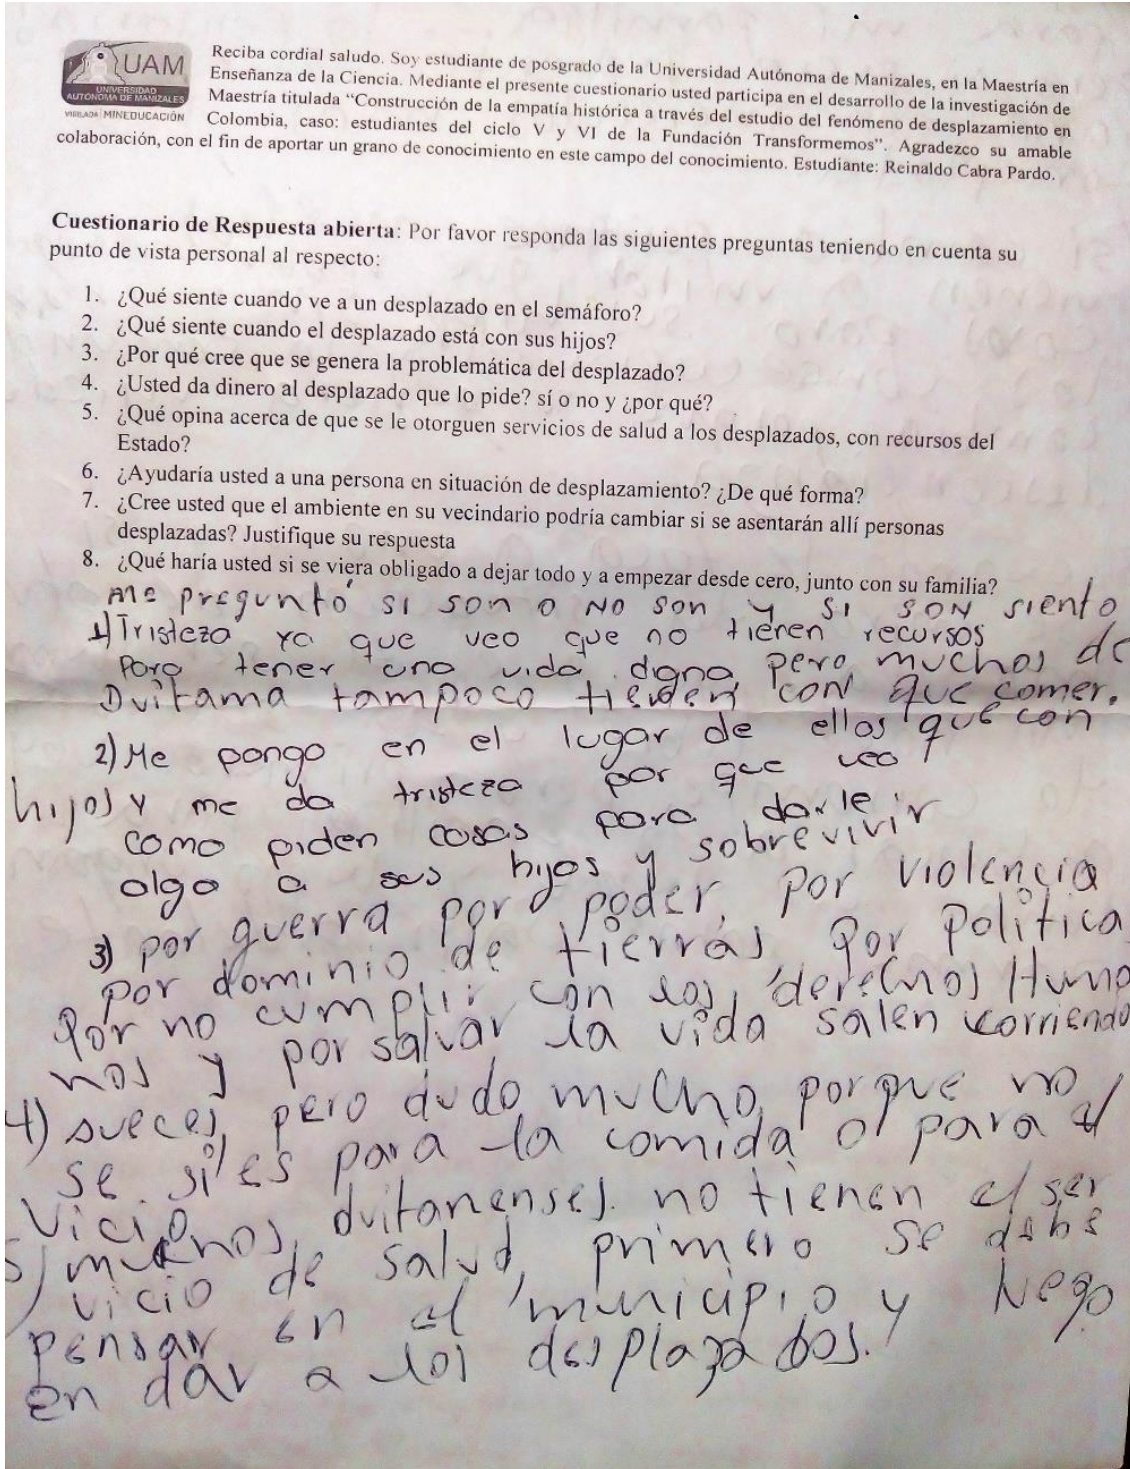 UAM
UNIVERSIDAD
AUTÓNOMA DE MANIZALES
VIGILADA MINEDUCACIÓN
Reciba cordial saludo. Soy estudiante de posgrado de la Universidad Autónoma de Manizales, en la Maestría en
Enseñanza de la Ciencia. Mediante el presente cuestionario usted participa en el desarrollo de la investigación de
Maestría titulada “Construcción de la empatía histórica a través del estudio del fenómeno de desplazamiento en
Colombia, caso: estudiantes del ciclo V y VI de la Fundación Transformemos”. Agradezco su amable
colaboración, con el fin de aportar un grano de conocimiento en este campo del conocimiento. Estudiante: Reinaldo Cabra Pardo.
Cuestionario de Respuesta abierta: Por favor responda las siguientes preguntas teniendo en cuenta su
punto de vista personal al respecto:
1. ¿Qué siente cuando ve a un desplazado en el semáforo?
2. ¿Qué siente cuando el desplazado está con sus hijos?
3. ¿Por qué cree que se genera la problemática del desplazado?
4. ¿Usted da dinero al desplazado que lo pide? sí o no y ¿por qué?
5. ¿Qué opina acerca de que se le otorguen servicios de salud a los desplazados, con recursos del
Estado?
6. ¿Ayudaría usted a una persona en situación de desplazamiento? ¿De qué forma?
7. ¿Cree usted que el ambiente en su vecindario podría cambiar si se asentarán allí personas
desplazadas? Justifique su respuesta
8. ¿Qué haría usted si se viera obligado a dejar todo y a empezar desde cero, junto con su familia?
Me preguntó si son o No son y si son siento
1) Tristeza ya que veo que no tienen recursos
para tener una vida digna, pero muchos de
Duitama tampoco tienen con que comer.
2) Me pongo en el lugar de ellos que con
hijos y me da tristeza por que veo
como piden cosas para darle
algo a sus hijos y sobrevivir
3) por guerra por poder, por violencia
por dominio de tierras, por politica
por no cumplir con los derechos Huma
nos y por salvar la vida salen corriendo
4) aveces, pero dudo mucho, porque no
se si es para la comida o para el
vicio
5) muchos duitamenses no tienen el ser
vicio de salud, primero se debe
pensar en el municipio y luego
en dar a los desplazados.